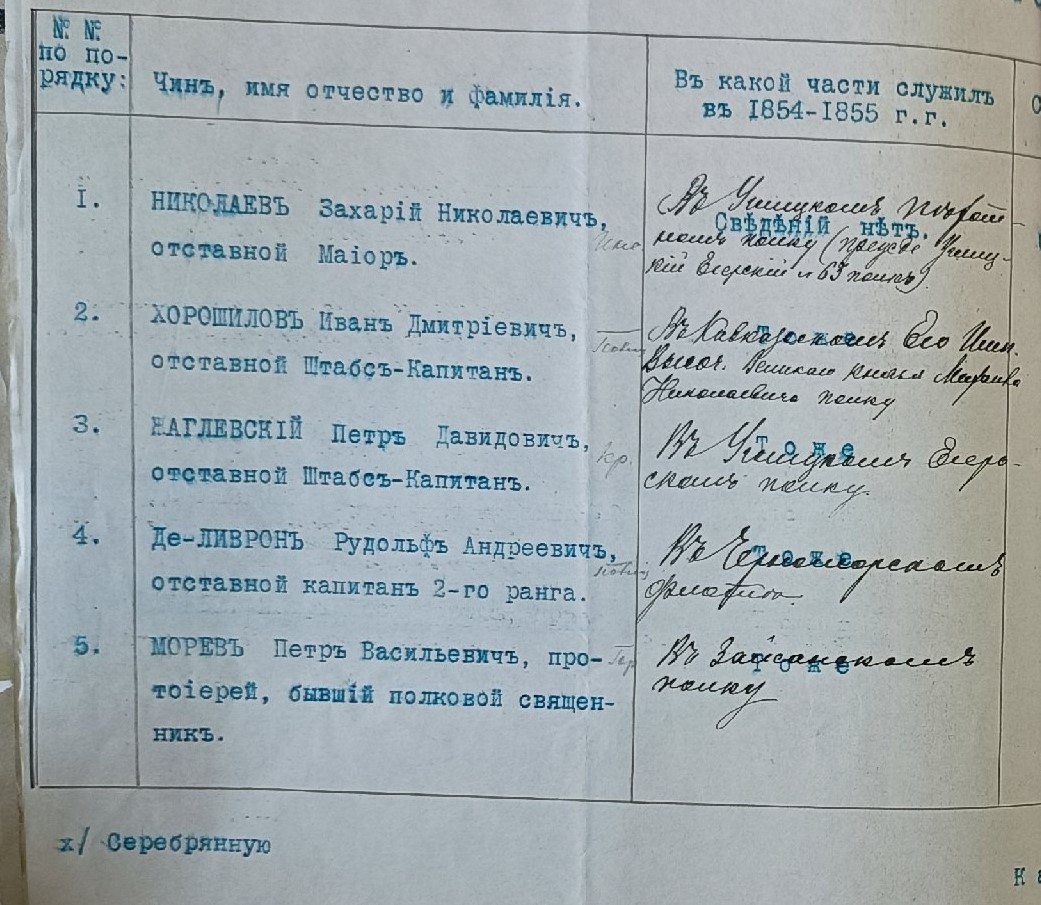 № № по по-рядку:
Чинъ, имя отчество и фамилія.
Въ какой части служилъ
въ 1854-1855 г.г.
1.
НИКОЛАЕВЪ Захарій Николаевичъ,
отставной Маіоръ.
Свѣдѣній нѣтъ.
Въ Углицкомъ
полку
Егерскій
2.
ХОРОШИЛОВЪ Иванъ Дмитріевичъ,
отставной Штабсъ-Капитанъ.
тоже
Въ Кавказскомъ Его Имп.
Высоч. Великаго князя Михаила
Николаевича полку
3.
НАГЛЕВСКІЙ Петръ Давидовичъ,
отставной Штабсъ-Капитанъ.
тоже
Въ Углицкомъ Егер-
скомъ полку.
4.
Де-ЛИВРОНЪ Рудольфъ Андреевичъ,
отставной капитанъ 2-го ранга.
тоже
Въ Черноморскомъ
флотѣ
5.
МОРЕВЪ Петръ Васильевичъ, про-
тоіерей, бывшій полковой священ-
никъ.
тоже
Въ
полку
х/ Серебрянную